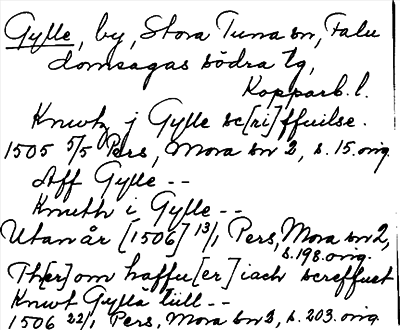 Gylle, by, Stora Tuna sn, Falu
domsagas södra tg,
Kopparb. l.
Knwtz j Gylle sc[ri]ffuilse.
1505 5/5 Pers, Mora sn 2, s. 15. orig.
Aff Gylle --
Knuth i Gylle --
Utan år [1506] 13/1 Pers, Mora sn 2,
s. 198. orig.
Th[er] om haffu[er] iach screffuet
Knwt Gylla tiill --
1506 22/1 Pers, Mora sn 2, s. 203. orig